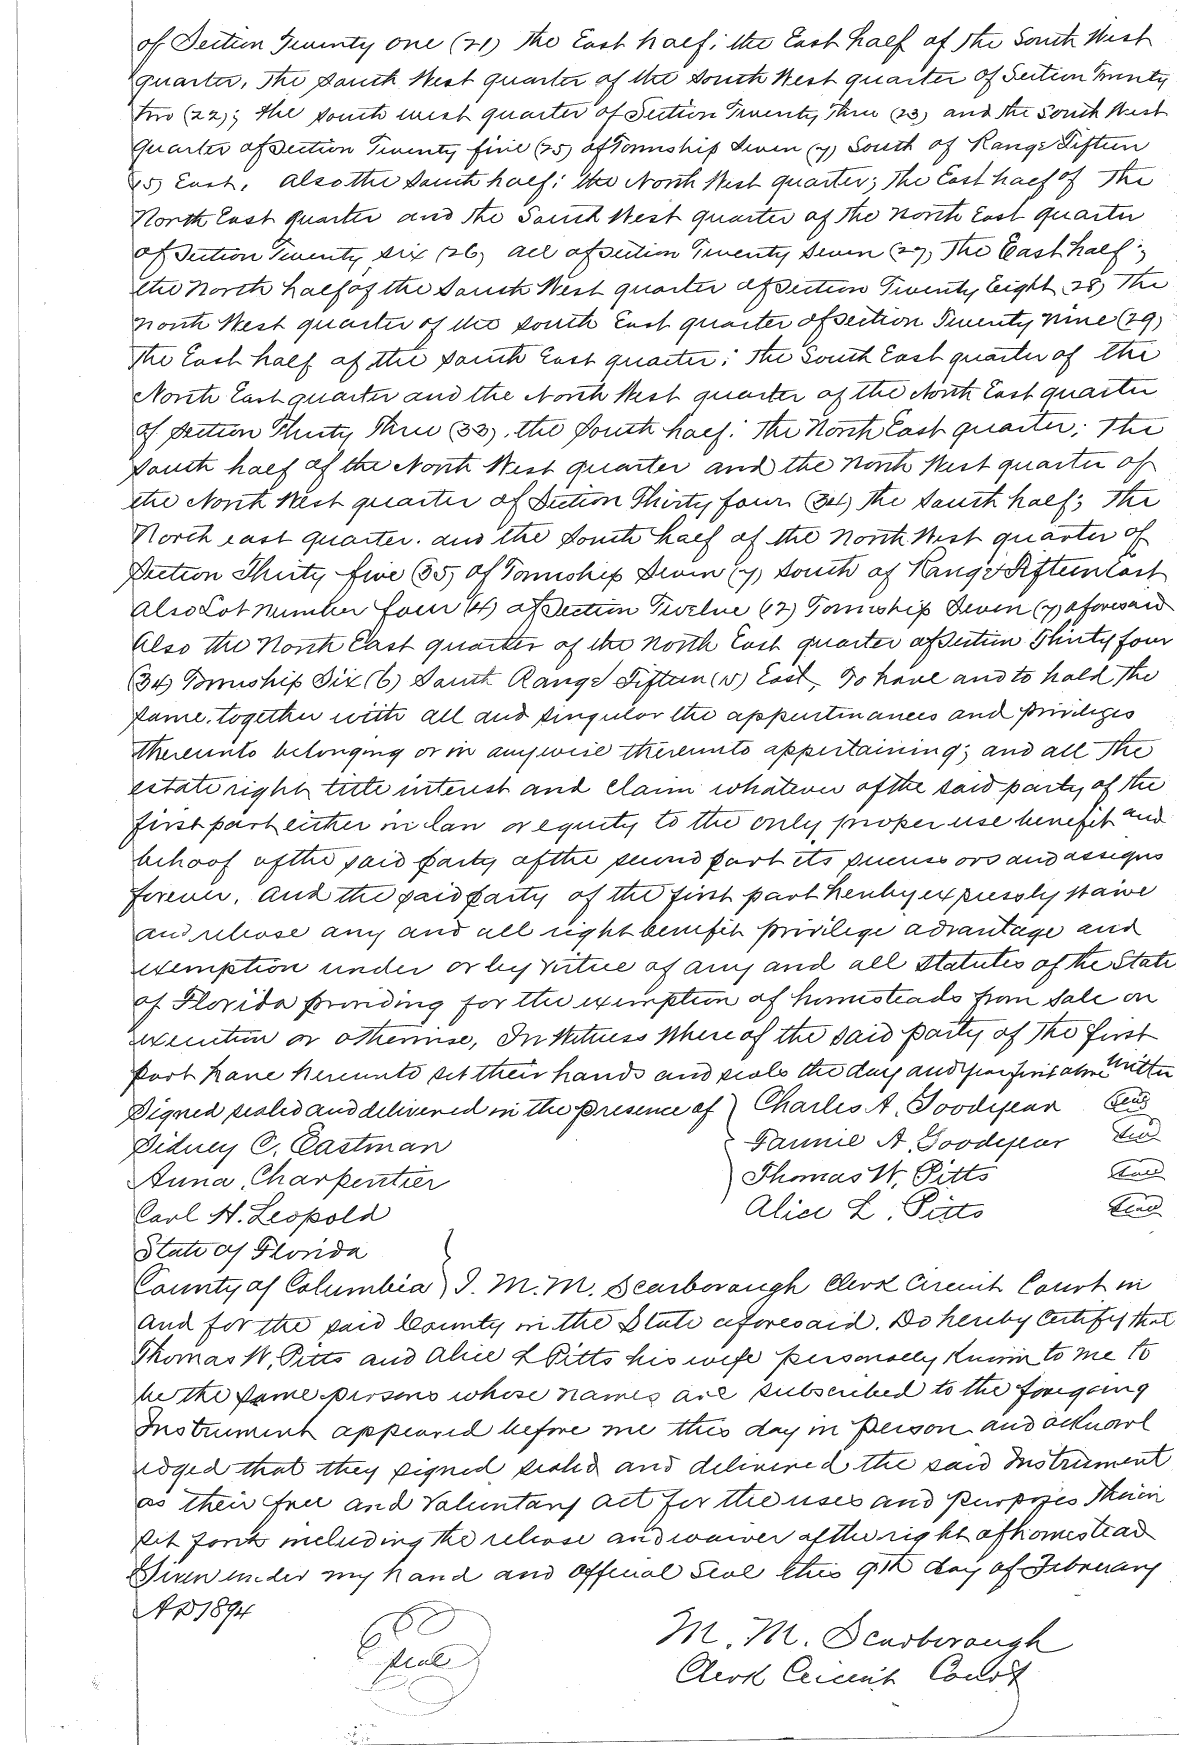 of Section Twenty one (21) The East half; the East half of the South West
quarter, The South West quarter of the South West quarter of Section Twenty
two (22); the South west quarter of Section Twenty Three (23) and the South West
quarter of Section Twenty five (25) of Township Seven (7) South of Range Fifteen
(15) East, Also the South half; the North West quarter; The East half of The
North East quarter and the South West quarter of the North East quarter
of Section Twenty six (26) all of Section Twenty Seven (27) The East half;
the North half of the South West quarter of Section Twenty Eight (28) The
North West quarter of the South East quarter of Section Twenty nine (29)
The East half of the South East quarter; The South East quarter of the
North East quarter and the North West quarter of the North East quarter
of Section Thirty Three (33), the South half; The North East quarter; The
South half of the North West quarter and the North West quarter of
the North West quarter of Section Thirty four (34) the South half; The
North east quarter. and the South half of the North West quarter of
Section Thirty five (35) of Township Seven (7) South of Range Fifteen East
Also Lot Number four (4) of Section Twelve (12) Township Seven (7) aforesaid
Also the North East quarter of the North East quarter of Section Thirty four
(34) Township Six (6) South Range Fifteen (15) East, To have and to hold the
same, together with all and singular the appurtinances and privileges
thereunto belonging or in anywise thereunto appertaining; and all The
estate right title interest and claim whatever of the said party of the
first part either in law or equity to the only proper use benefit and
behoof of the said party of the second part its successors and assigns
forever. And the said party of the first part hereby expressly waive
and release any and all right benefit privilege advantage and
exemption under or by virtue of any and all statutes of the State
of Florida providing for the exemption of homesteads from sale on
execution or otherwise, In Witness Where of the said party of The first
part have hereunto set their hands and seals the day and year first above written
Signed sealed and delivered in the presence of } Charles A. Goodyear Seal
Sidney C. Eastman Fannie A. Goodyear Seal
Anna Charpentier Thomas W. Pitts Seal
Carl H. Leopold Alice L. Pitts Seal
State of Florida
County of Columbia } I. M. M. Scarborough Clerk Circuit Court in
and for the said County in the State aforesaid. Do hereby Certify that
Thomas W. Pitts and Alice L Pitts his wife personally known to me to
be the same persons whose names are subscribed to the foregoing
Instrument appeared before me this day in person and acknowl
edged that they signed sealed and delivered the said Instrument
as their free and Voluntary act for the uses and purposes Therein
set forth including the release and waiver of the right of homestead
Given under my hand and official Seal this 9th day of February
AD 1894
Seal
M. M. Scarborough
Clerk Circuit Court